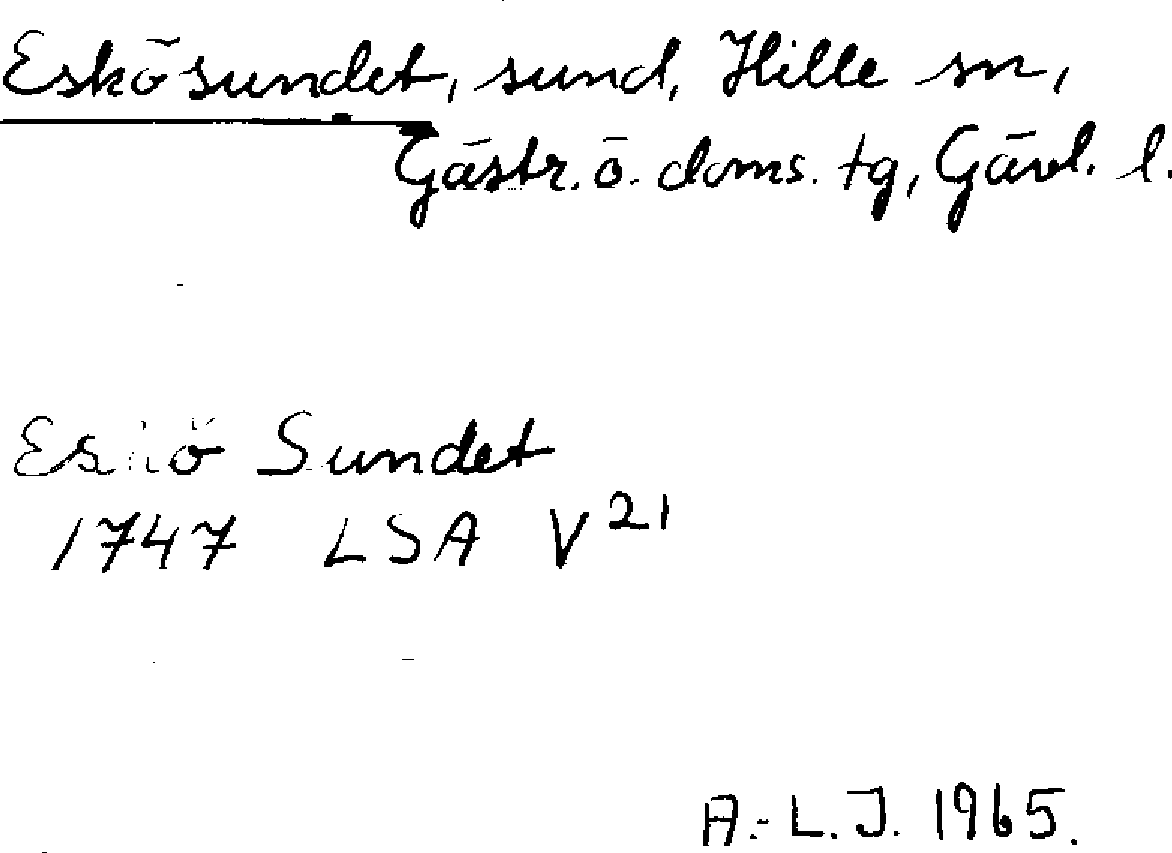 Eskösundet, sund, Hille sn,
Gästr. ö. doms. tg, Gävl. l.
Eskö Sundet
1747 LSA V21
A.-L.J. 1965.